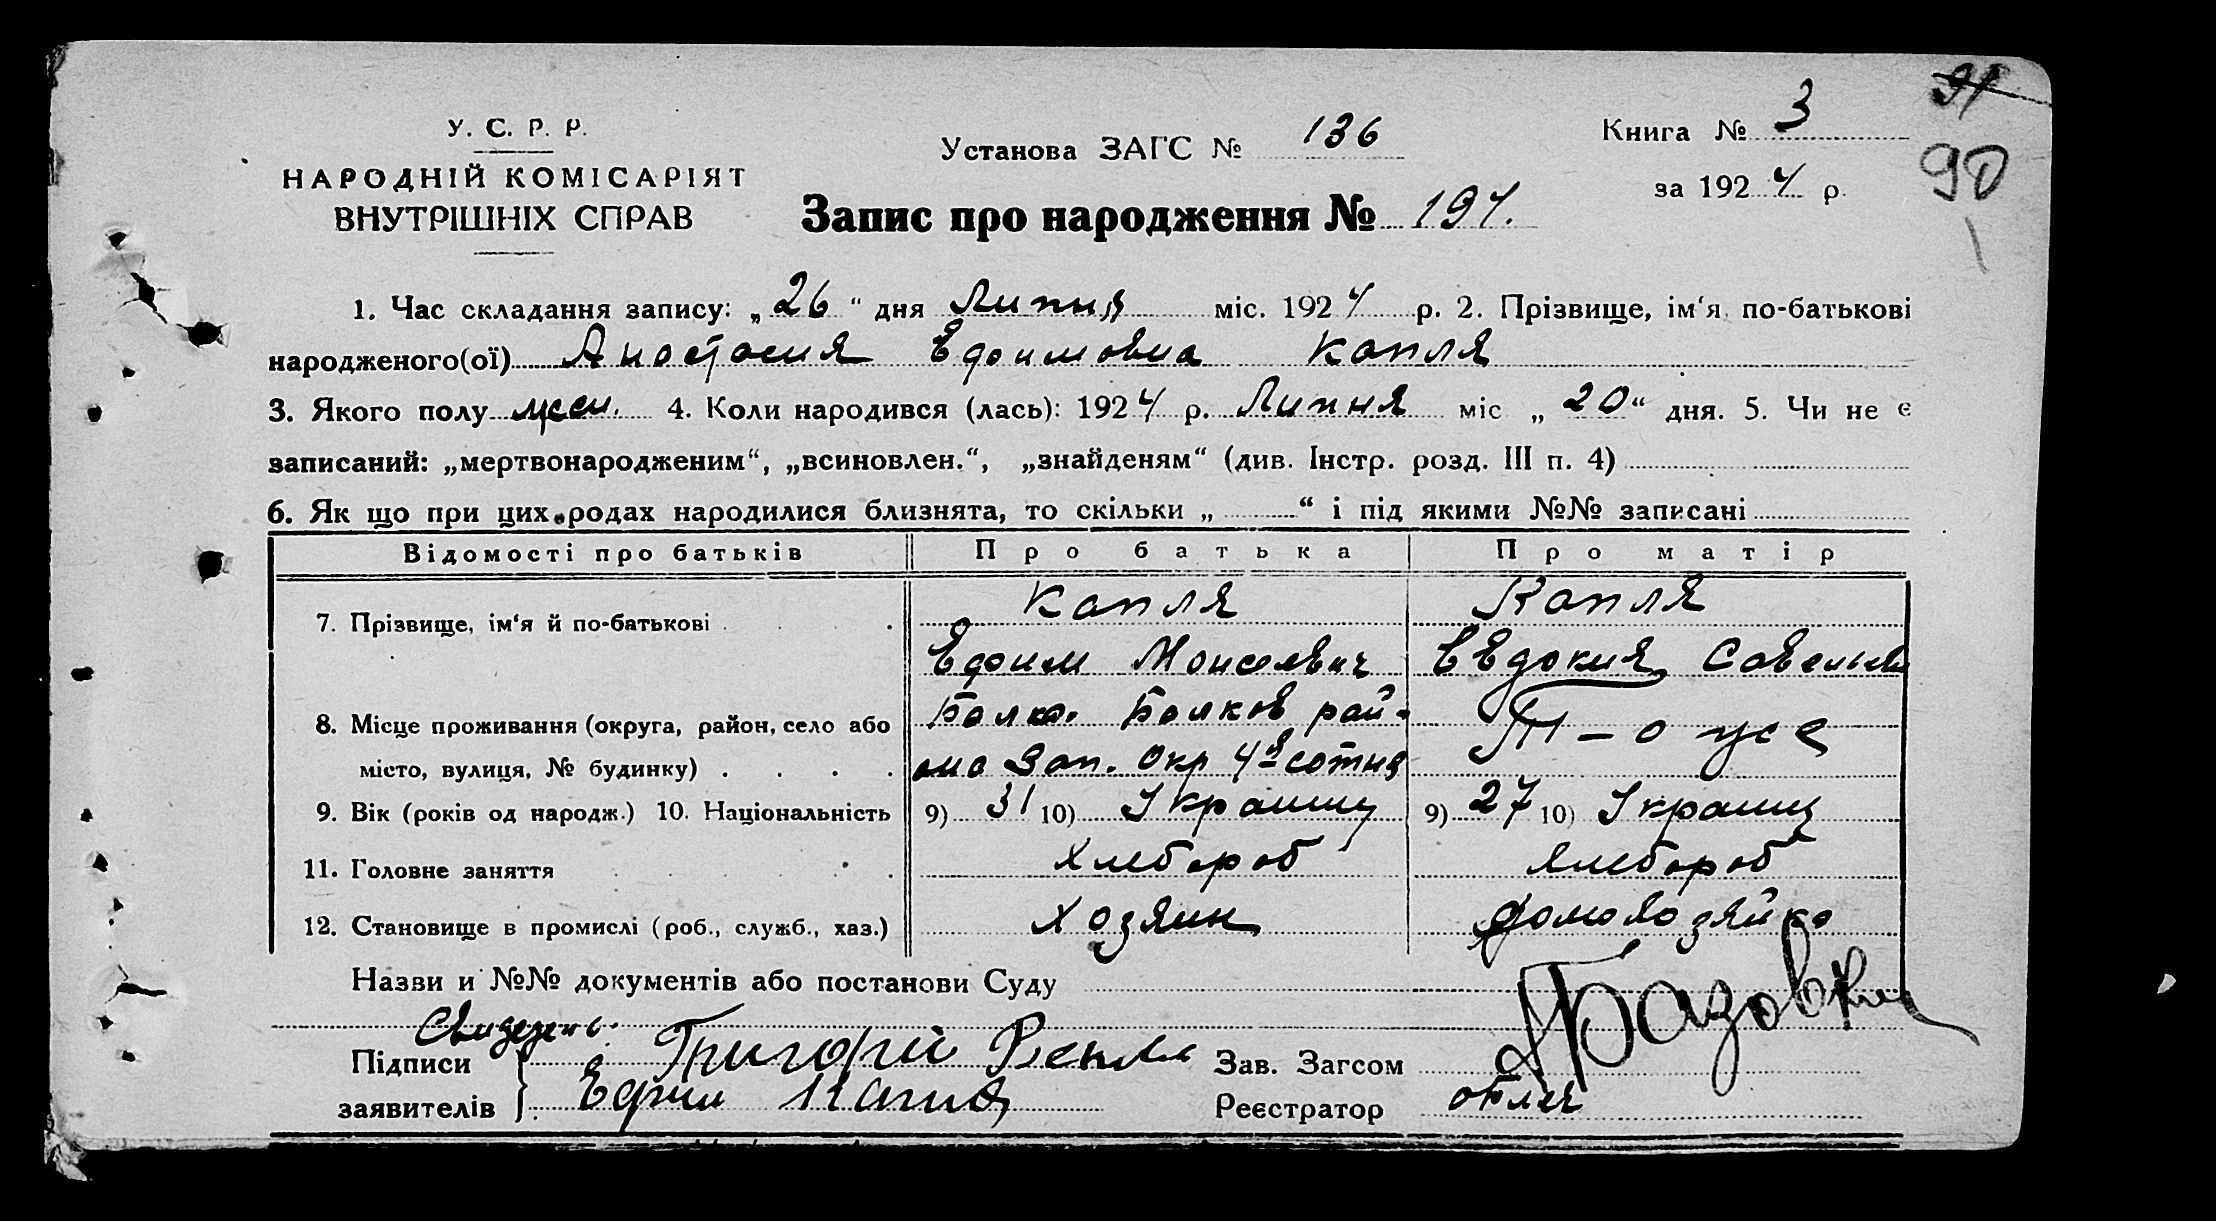 91
У. С. Р. Р.
НАРОДНІЙ КОМІСАРІЯТ
ВНУТРІШНІХ СПРАВ
Установа ЗАГС № 136
Книга № 3
за 1924 р.
90
Запис про народження № 194.
1. Час складання запису: „26“ дня Липня міс. 1924 р. 2. Прізвище, ім‘я, по-батькові
народженого(ої) Анастасия Ефимовна Капля
3. Якого полу жен. 4. Коли народився (лась): 1924 р. Липня міс „20“ дня. 5. Чи не є
записаний: „мертвонародженим“, „всиновлен.“, „знайденям“ (див. Інстр. розд. III п. 4)
6. Як що при цих родах народилися близнята, то скільки „ “ і під якими №№ записані
Відомості про батьків Про батька Про матір
7. Прізвище, ім‘я й по-батькові Капля Капля
Ефим Моисеевич Евдокия Савельев
8. Місце проживання (округа, район, село або Балка. Балков рай-
місто, вулиця, № будинку) она Зап. Окр 4й сотня Т-о же
9. Вік (років од народж.) 10. Національність 9) 31 10) Украинц 9) 27 10) Украинц
11. Головне заняття Хлебороб Хлебороб
12. Становище в промислі (роб., служб., хаз.) Хозяин домохозяйка
Назви и №№ документів або постанови Суду
Свидетель:
Підписи Григорій Зав. Загсом
заявителів Ефим Капля Реєстратор